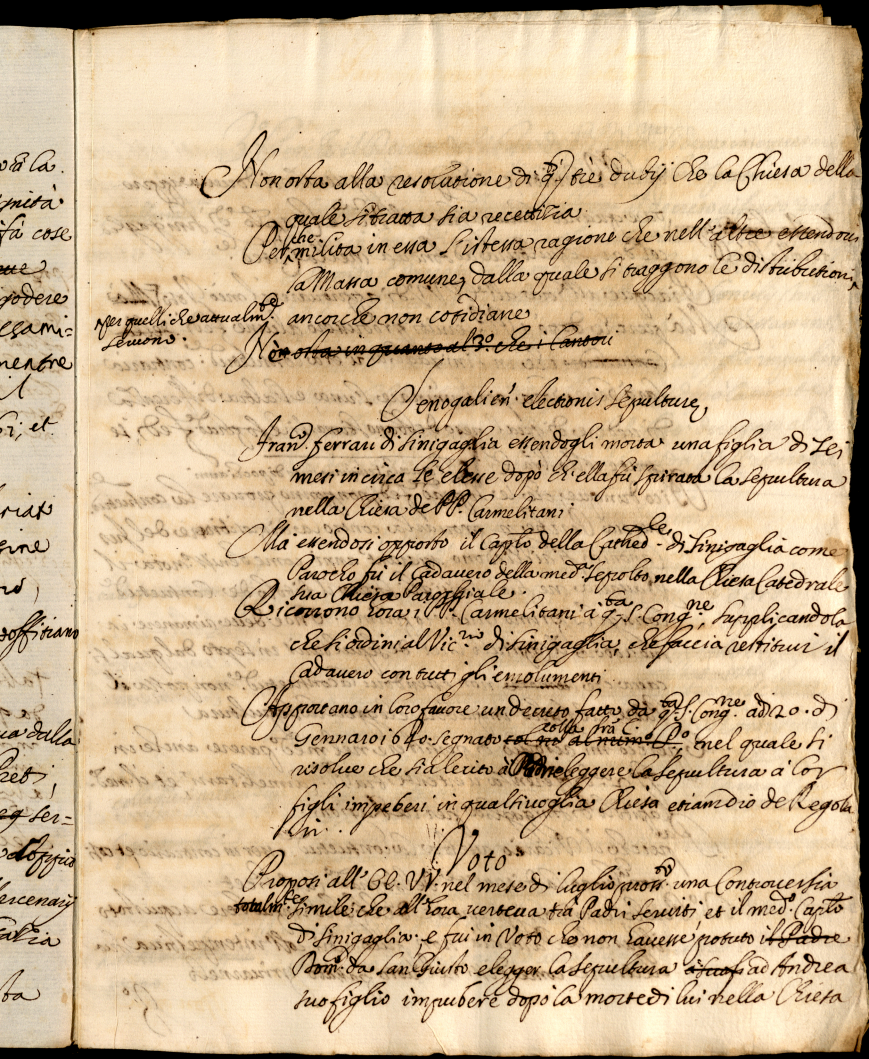 và la
gnità
fà cose
godere
essami=
mentre
il
si, et
riat
sine
offitiano
ua dalla
Preti
ser=
offitio
ercenarij
sta
Non osta alla resolutione di q.ti trè dubij che la Chiesa della
quale si tratta sia recettitia
Perche milita in essa l'istessa ragione che nell'altre essendoui
la Massa comune, dalla quale si traggono le distributioni,
per quelli che attualm.te
seruono.
ancorche non cotidiane
Non osta in quanto al 3.o che i Cantori
Senogallien. electionis sepulturæ
Fran.co Ferrari di Sinigaglia essendogli morta una figlia di sei
mesi in circa le elesse dopò ch'ella fù spirata la sepultura
nella Chiesa de PP. Carmelitani
Ma essendosi opposto il Cap.lo della Cathed.le di Sinigaglia come
Parocho fù il Cadauero della med.a sepolto nella Chiesa Catedrale
sua Chiesa Parochiale.
Ricorrono hora i PP. Carmelitani à q.ta S. Cong.ne supplicandola
che si ordini al Vic.rio di Sinigaglia, che faccia restituir il
Cadauero con tutti gli emolumenti
Apportano in loro fauore un decreto fatto da q.ta S. Cong.ne a dì 20. di
Gennaro 1640. segnato colla frà C. nel quale si
risolue che sia lecito à Padri eleggere la sepultura à lor
figli impuberi in qualsiuoglia Chiesa etiamdio de Regola
ri.
Voto
Proposi all' EE. VV. nel mese di luglio pross.o una Controuersia
totalm.te simile che all'hora uerteua trà Padri Seruiti et il med.o Cap.lo
di Sinigaglia, e fui in Voto che non hauesse potuto il Padre
Dom.co da San Giusto elegger la sepultura ad Andrea
suo figlio impubere dopò la morte di lui nella Chiesa